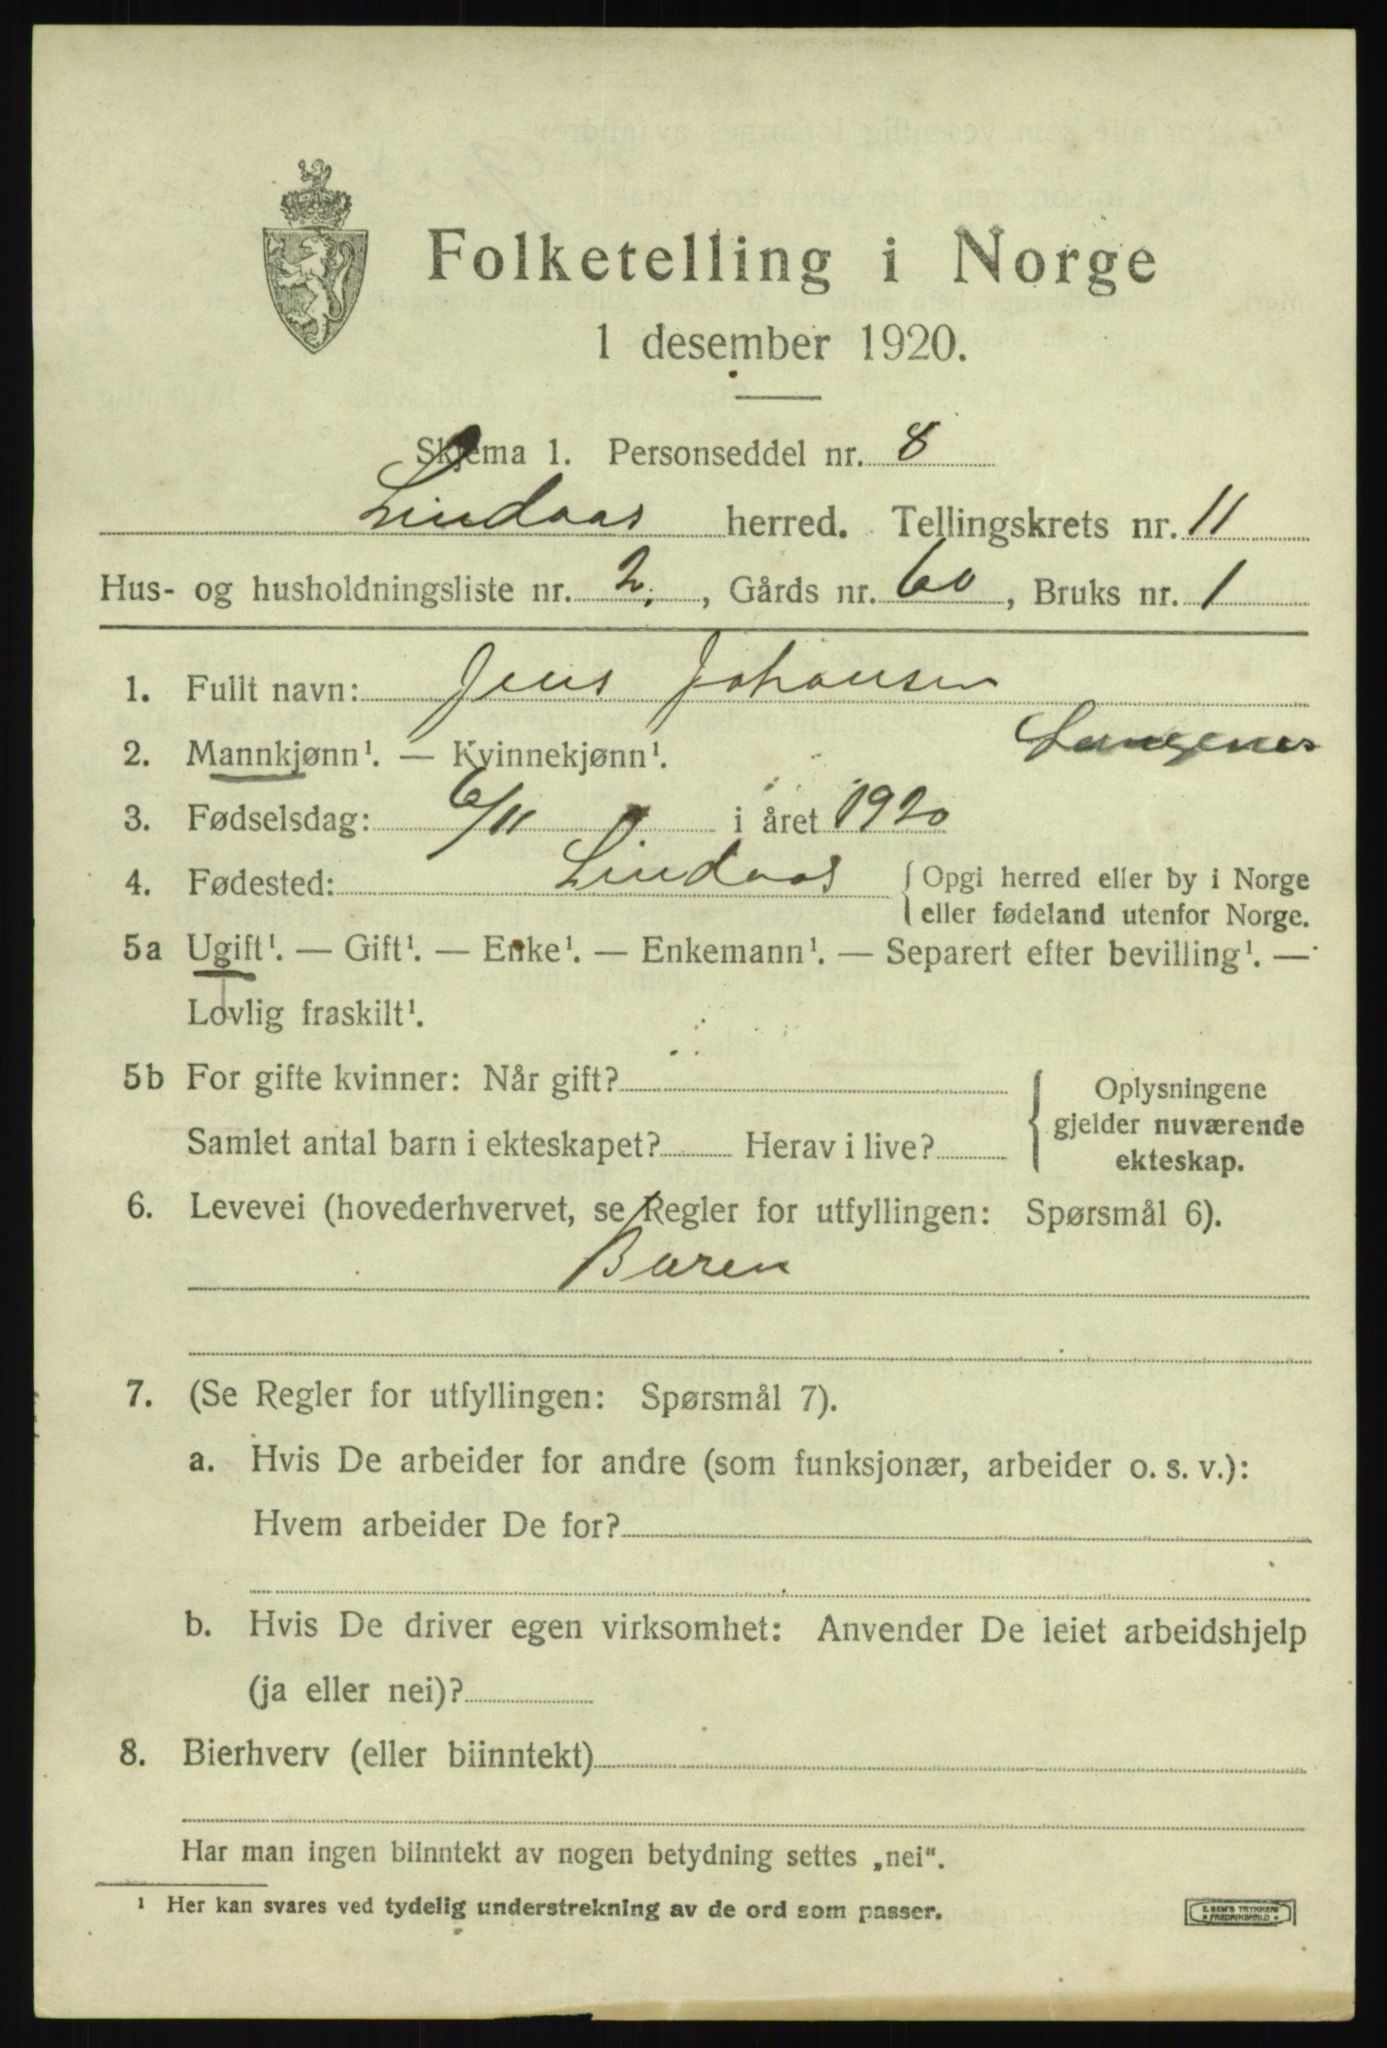 Folketelling i Norge
1 desember 1920.
Skjema 1. Personseddel nr. 8
Lindaas herred. Tellingskrets nr. 11
Hus- og husholdningsliste nr. 2., Gårds nr. 60, Bruks nr. 1
1. Fullt navn: Jens Johansen
Langenes
2. Mannkjønn¹. — Kvinnekjønn¹.
3. Fødselsdag: 6/11 i året 1920
4. Fødested: Lindaas { Opgi herred eller by i Norge
eller fødeland utenfor Norge.
5a Ugift¹. — Gift¹. — Enke¹. — Enkemann¹. — Separert efter bevilling¹. —
Lovlig fraskilt¹.
5b For gifte kvinner: Når gift?
Samlet antal barn i ekteskapet? Herav i live?
{ Oplysningene
gjelder nuværende
ekteskap.
6. Levevei (hovederhvervet, se Regler for utfyllingen: Spørsmål 6).
Baren
7. (Se Regler for utfyllingen: Spørsmål 7).
a. Hvis De arbeider for andre (som funksjonær, arbeider o. s. v.):
Hvem arbeider De for?
b. Hvis De driver egen virksomhet: Anvender De leiet arbeidshjelp
(ja eller nei)?
8. Bierhverv (eller biinntekt)
Har man ingen biinntekt av nogen betydning settes „nei“.
¹ Her kan svares ved tydelig understrekning av de ord som passer.